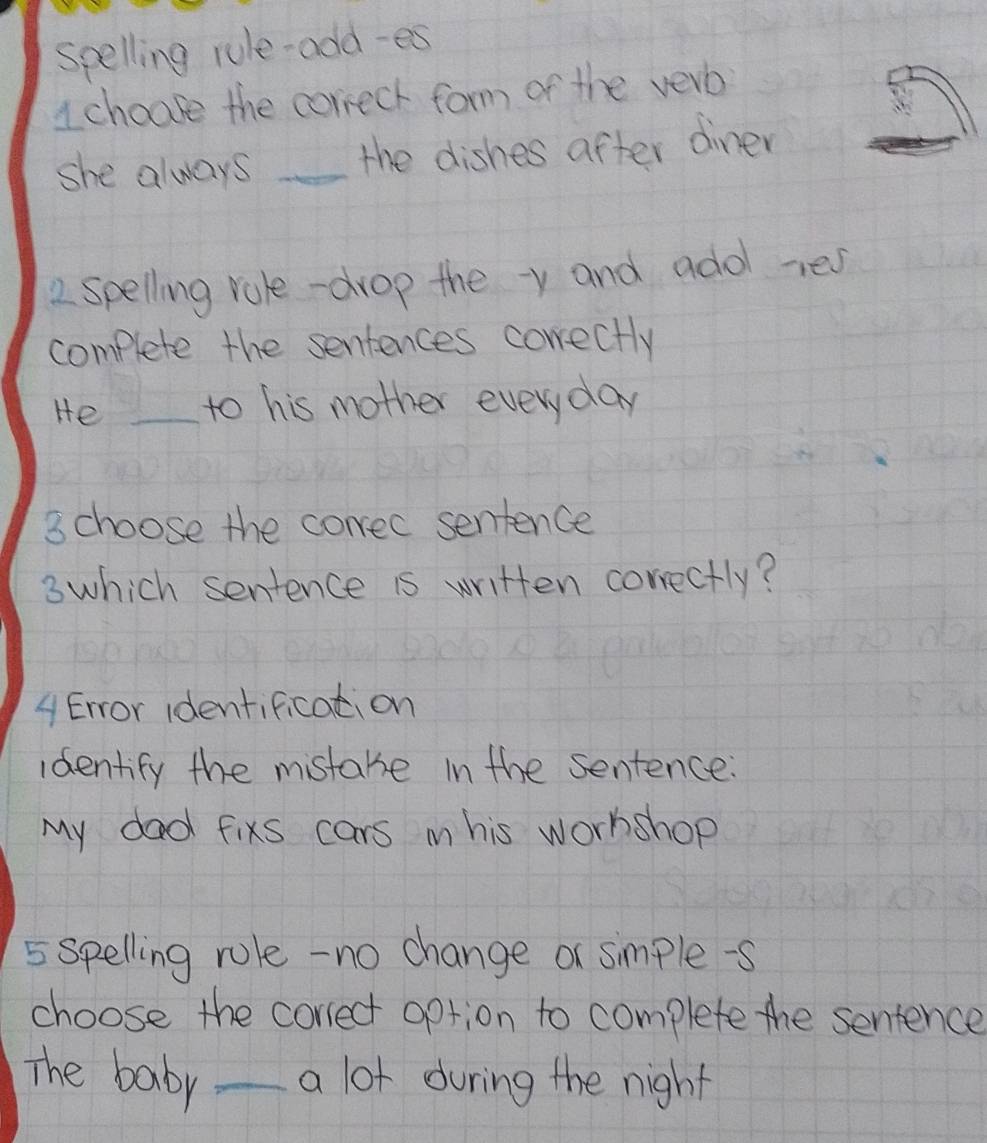 spelling rule-add-es
1 choose the correct form of the verb
she always __ the dishes after diner
2 spelling rule-drop the -y and add -ies
complete the sentences correctly
He __ to his mother everyday
3 choose the correc sentence
3 which sentence is written correctly?
4 Error identification
identify the mistake in the sentence:
My dad fixs cars in his workshop
5 spelling rule -no change or simple -s
choose the correct option to complete the sentence
The baby __ a lot during the night